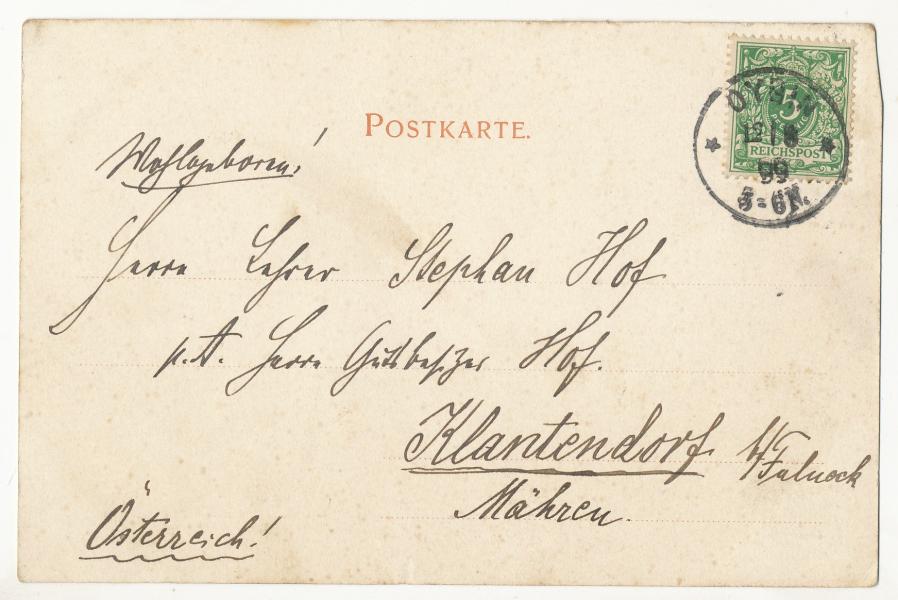 POSTKARTE.
5
REICHSPOST
OYBIN
12 8
99
5-6N.
Wohlgeboren!
Herrn Lehrer Stephan Hof
p.A. Herrn Gutsbesitzer Hof.
Klantendorf b/Fulneck
Mähren.
Österreich!